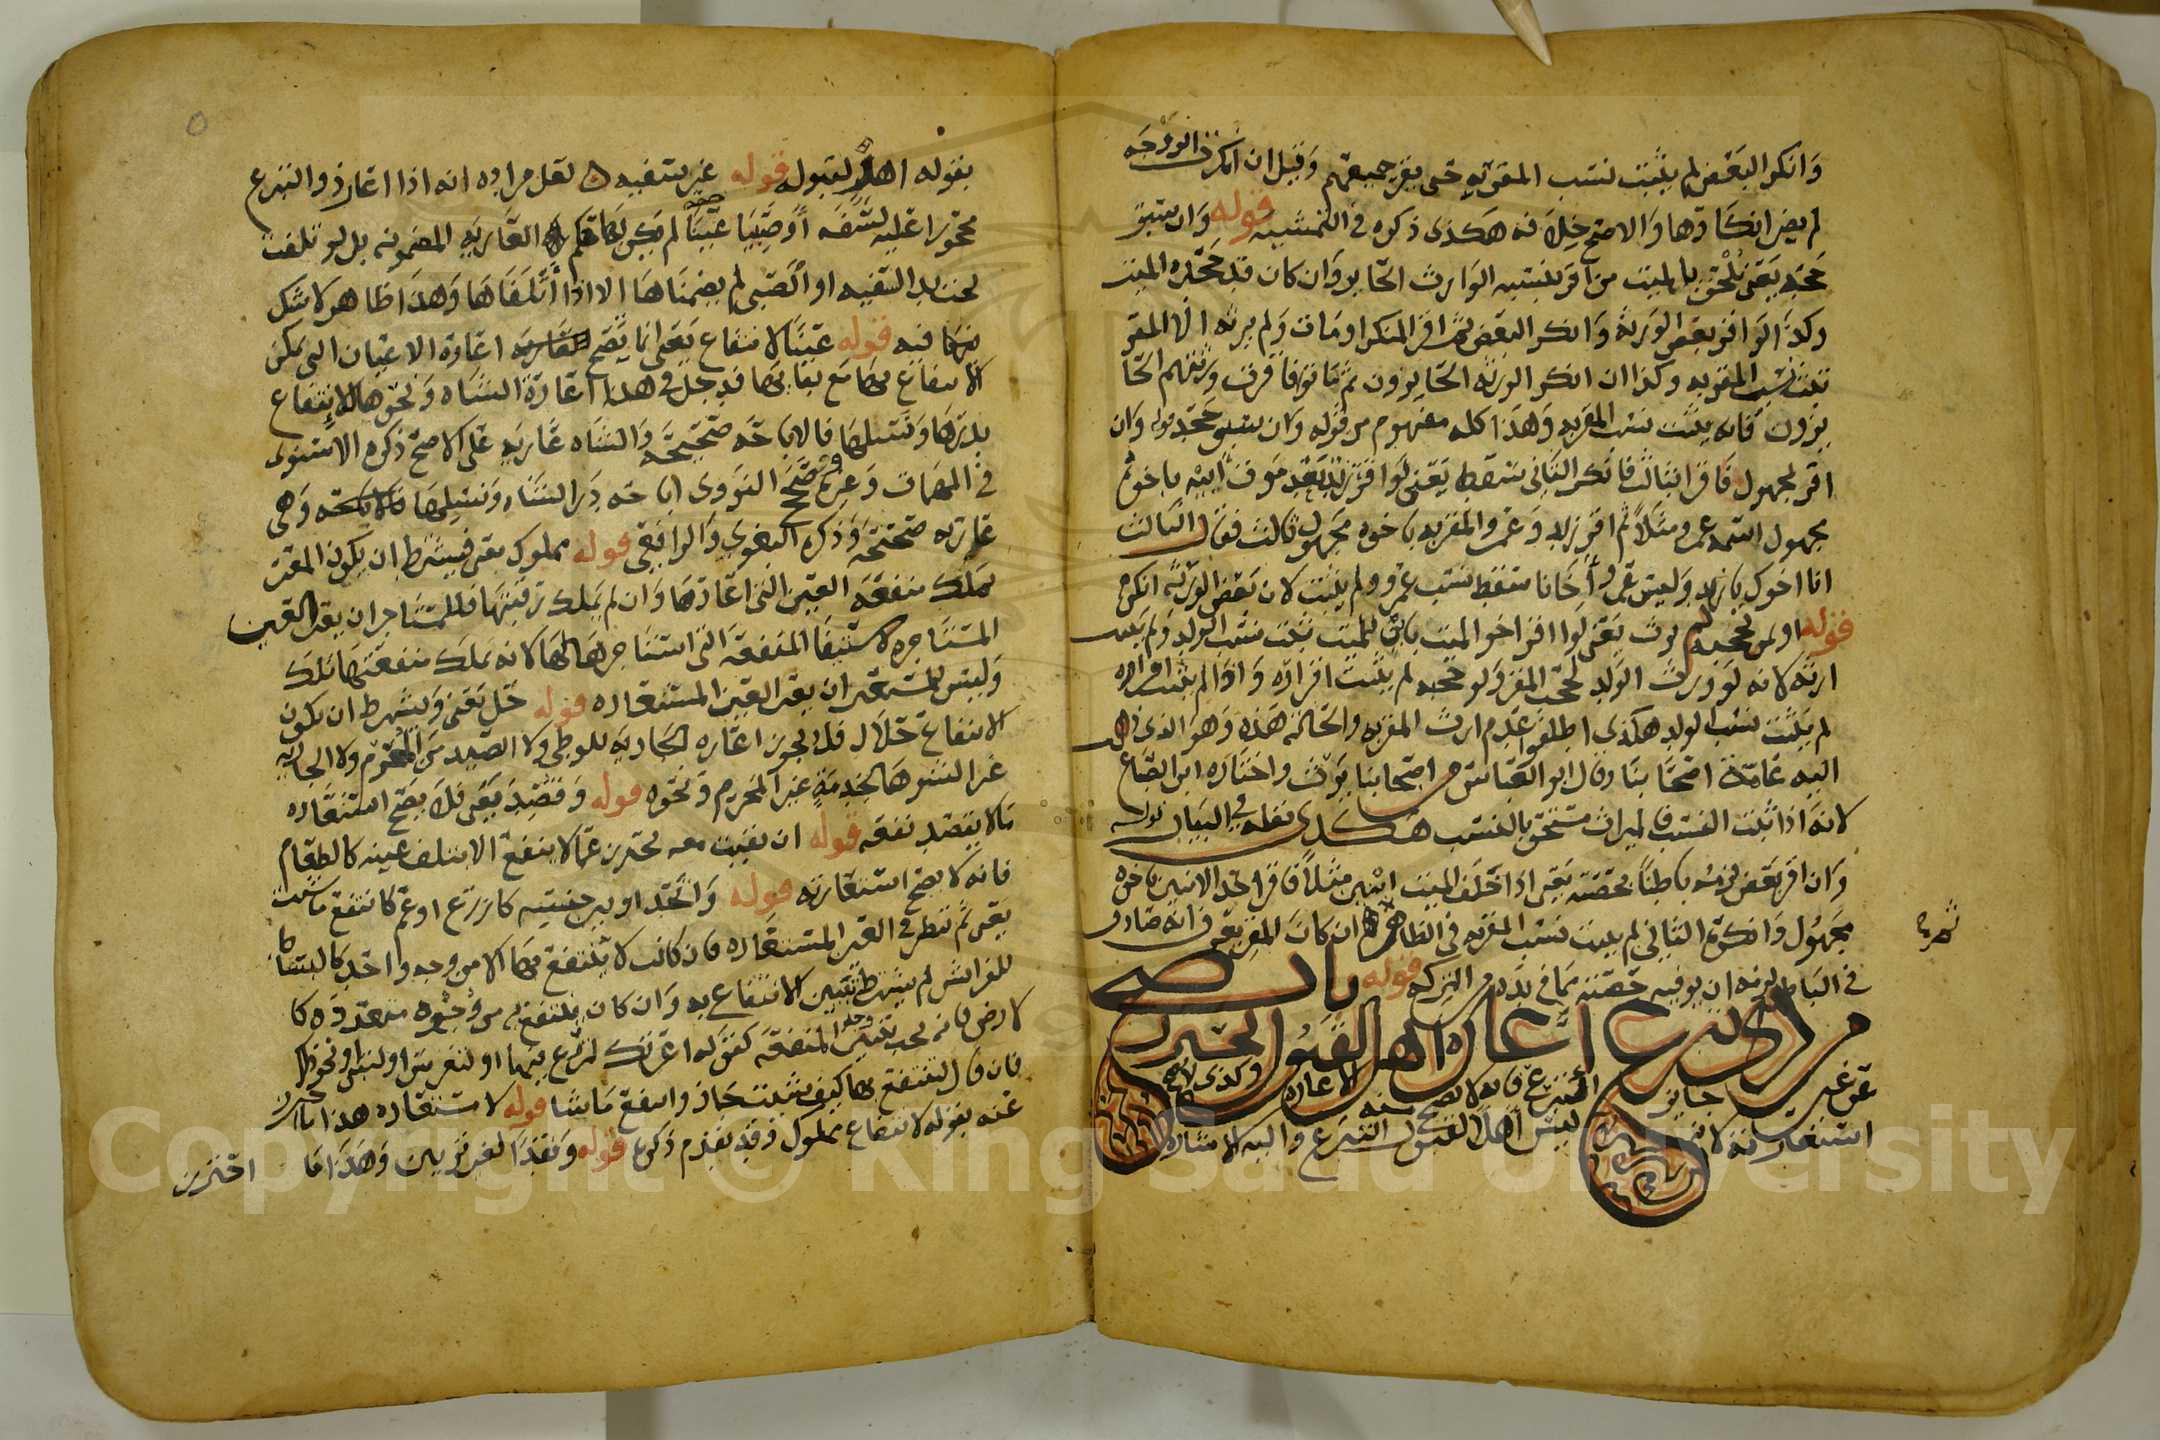 وانكر البعض لم يثبت نسب المقر به حتى يقر جميعهم وقيل ان انكرت الزوجه
لم يضر انكارها والاصح خلافه هكذى ذكره في التمشيه قوله وان سبق
جحد يعنى يلحق بالميت من اقر بنسبه الوارث الحايز وان كان قد جحده الميت
وكذا لو اقر بعض الورثة وانكر البعض ثم اقر المنكر او مات ولم يرثه الا المقر
ثبت نسب المقر به وكذا ان انكر الورثه الحايزون ثم ماتوا فاقرت ورثتهم الحا
يزون فانه يثبت نسب المقر به وهذا كله مفهوم من قوله وان سبق جحد قوله وان
اقر لمجهول فاقر بثالث فانكر الثاني سقط يعنى لو اقر زيد بعد موت ابيه باخ
مجهول اسمه عمرو مثلا ثم اقر زيد وعمرو المقر به باخوه مجهول ثالث فقال الثالث
انا اخوك يا زيد وليس عمرو أخانا سقط نسب عمرو ولم يثبت لان بعض الورثه انكره
قوله او لمن يحجبه لم يرث يعنى لو اقر اخو الميت بابن للميت ثبت نسب الولد ولم يثبت
ارثه لانه لو ورث الولد لحجب المقر ولو حجبه لم يثبت اقراره واذا لم يثبت اقراره
لم يثبت نسب الولد هكذى اطلقوا عدم ارث المقر به والحاله هذه وهو الذى ذهب
اليه عامة اصحابنا وقال ابو العباس من اصحابنا يرث واختاره ابن الصباغ
لانه اذا ثبت النسب فالميراث مستحق بالنسب هكذى نقله في البيان قوله
وان اقر بعض لزمه باطنا بحصته يعنى اذا خلف الميت ابنين مثلا فاقر احد الابنين باخ
مجهول وانكره الثاني لم يثبت نسب المقر به في الظاهر ان كان المقر يعرف انه صادق
في الباطن لزمه ان يوفيه حصته مما في يده من التركه قوله باب
من له تبرع اعاره اهل القبول احترز
عن غير جايز التبرع فانه لا تصح منه الاعاره وكذى لا تصح
استعارته لانه ليس أهلا لقبول التبرع واليه الاشاره
بقوله اهل لقبوله قوله غير سفيه لعل مراده انه اذا اعار ذو التبرع
محجورا عليه لسفه أو صبيا عينا لم يكن لها حكم العاريه المضمونه بل لو تلفت
تحت يد السفيه او الصبى لم يضمناها الا اذا أتلفاها وهذا ظاهر لا شك
فيه قوله عينا لانتفاع يعنى انما يصح اعارة الاعيان التى يمكن
الانتفاع بها مع بقايها فدخل في هذا اعارة الشاه ونحوها للانتفاع
بدرها ونسلها فالاباحه صحيحه والشاه عاريه على الاصح ذكره الاسنوى
في المهمات وغيره وصحح النووى اباحه در الشاه ونسلها وهى
عاريه صحيحه وذكره البغوي والرافعى قوله مملوك يعنى فيشترط ان يكون المعير
يملك منفعة العين التى اعارها وان لم يملك رقبتها فللمستاجر ان يعير العين
المستاجره لاستيفا المنفعه التى استاجرها لها لانه يملك منفعتها تلك
وليس للمستعير ان يعير العين المستعاره قوله حل يعنى ويشترط ان يكون
الانتفاع حلال فلا يجوز اعاره الجاريه للوطى ولا الصيد من المحرم ولا الجاريه
غير الشوها لخدمة غير المحرم ونحوه قوله وقصد يعنى فلا يصح استعاره
ما لا يقصد نفعه قوله ان بقيت معه يحترز عما لا ينتفع الا بتلف عينه كالطعام
فانه لا يصح استعارته قوله واتحد او بين جنسه كازرع او عم كانتفع ما شيت
يعنى ثم ننظر في العين المستعاره فان كانت لا ينتفع بها الا من وجه واحد كالبساط
للفراش لم يشترط تبيين الانتفاع به وان كان ينتفع به من وجوه متعدده كا
لارض فانه يجب تبيين المنفعه كقوله اعرتك لتزرع فيها او لتغرس او لتبنى ونحو ذلك
فان قال لتنتفع بها كيف شيت جاز وانتفع ما شا قوله لاستعاره هذا ما احترز
عنه بقوله لانتفاع مملوك وقد تقدم ذكره قوله ونقدا لغير تزيين وهذا ما
احترز